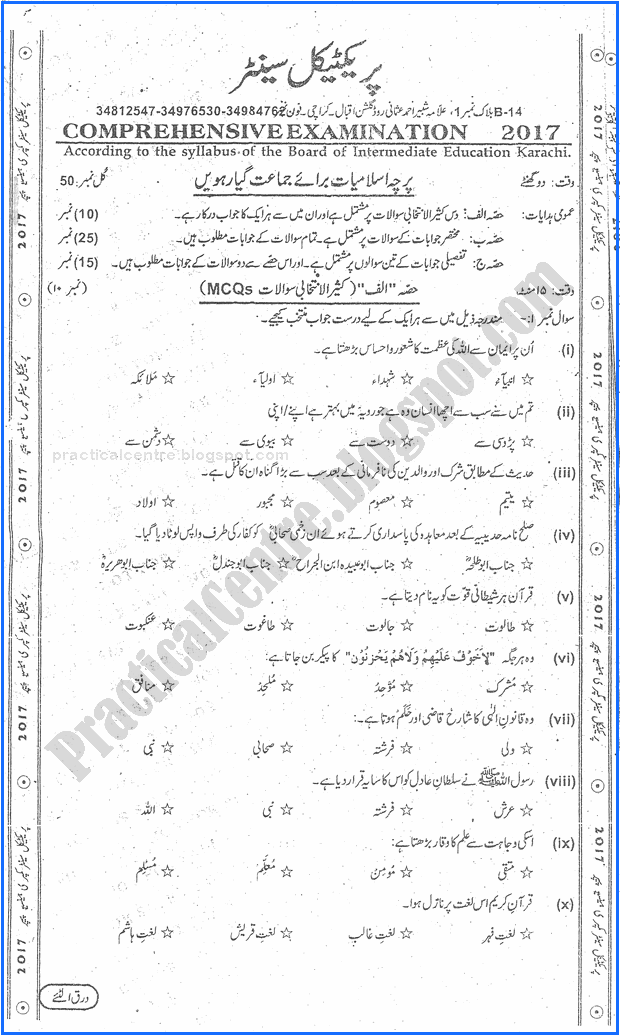 پریکٹیکل سینٹر
B-14 بلاک نمبر 1، علامہ شبیر احمد عثمانی روڈ گلشن اقبال ۔ کراچی۔ فون نمبر 34812547-34976530-34984762
COMPREHENSIVE EXAMINATION 2017
According to the syllabus of the Board of Intermediate Education Karachi.
وقت: دو گھنٹے پرچہ اسلامیات برائے جماعت گیارہویں کل نمبر: 50
عمومی ہدایات: حصّہ الف: دس کثیر الانتخابی سوالات پر مشتمل ہے اور ان میں سے ہر ایک کا جواب درکار ہے۔ (10) نمبر
حصّہ ب: مختصر جوابات کے سوالات پر مشتمل ہے۔ تمام سوالات کے جوابات مطلوب ہیں۔ (25) نمبر
حصّہ ج: تفصیلی جوابات کے تین سوالوں پر مشتمل ہے۔ اور اس حصّے سے دو سوالات کے جوابات مطلوب ہیں۔ (15) نمبر
وقت: ۱۵ منٹ حصّہ "الف" (کثیر الانتخابی سوالات MCQs) (نمبر ۱۰)
سوال نمبر ۱:- مندرجہ ذیل میں سے ہر ایک کے لیے درست جواب منتخب کیجیے۔
(i) اُن پر ایمان سے اللہ کی عظمت کا شعور و احساس بڑھتا ہے۔
☆ انبیآء ☆ شہداء ☆ اولیآء ☆ ملائکہ
(ii) تم میں سے سب سے اچھا انسان وہ ہے جو رویہ میں بہتر ہے اپنے/اپنی
☆ پڑوسی سے ☆ دوست سے ☆ بیوی سے ☆ دشمن سے
(iii) حدیث کے مطابق شرک اور والدین کی نافرمانی کے بعد سب سے بڑا گناہ ان کا قتل ہے۔
☆ یتیم ☆ معصوم ☆ مجبور ☆ اولاد
(iv) صلح نامہ حدیبیہ کے بعد معاہدہ کی پاسداری کرتے ہوئے ان زخمی صحابیؓ کو کفار کی طرف واپس لوٹا دیا گیا۔
☆ جناب ابو طلحہؓ ☆ جناب ابو عبیدہ ابن الجراحؓ ☆ جناب ابو جندلؓ ☆ جناب ابو ھریرہؓ
(v) قرآن ہر شیطانی قوّت کو یہ نام دیتا ہے۔
☆ طالوت ☆ جالوت ☆ طاغوت ☆ عنکبوت
(vi) وہ ہر جگہ "لَاخَوْفٌ عَلَيْهِمْ وَلَاهُمْ يَحْزَنُوْن" کا پیکر بن جاتا ہے:
☆ مُشرک ☆ مُؤحد ☆ مُلحِد ☆ منافق
(vii) وہ قانونِ الٰہی کا شارح قاضی اور حَکَم ہوتا ہے۔
☆ ولی ☆ فرشتہ ☆ صحابی ☆ نبی
(viii) رسول اللہ ﷺ نے سلطانِ عادل کو اس کا سایہ قرار دیا ہے۔
☆ عرش ☆ فرشتہ ☆ نبی ☆ اللہ
(ix) اسکی وجاہت سے علم کا وقار بڑھتا ہے:
☆ متقی ☆ مُومِن ☆ معلّم ☆ مُسلِم
(x) قرآن کریم اس لغت پر نازل ہوا۔
☆ لغتِ فہر ☆ لغتِ غالب ☆ لغتِ قریش ☆ لغتِ ہاشم
ورق الٹئے
practicalcentre.blogspot.com
Practicalcentre.blogspot.com
2017
2017
2017
2017
2017
2017
2017
2017